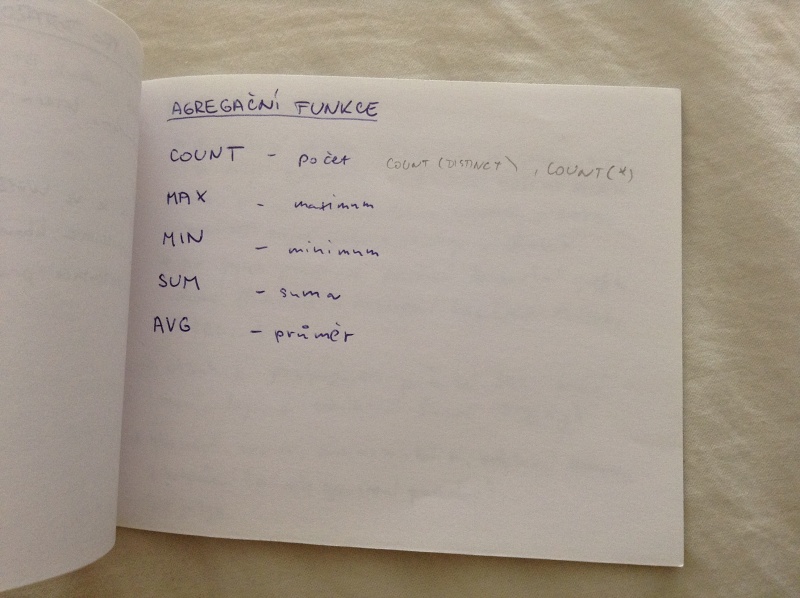 AGREGAČNÍ FUNKCE
COUNT - počet COUNT (DISTINCT) , COUNT(*)
MAX - maximum
MIN - minimum
SUM - suma
AVG - průměr